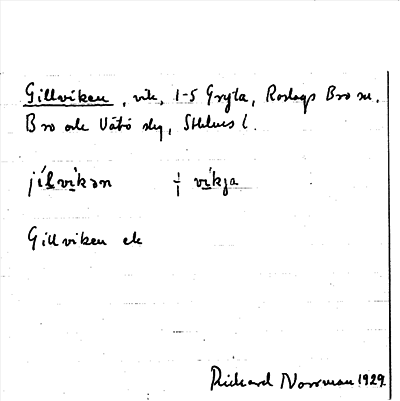 Gillviken, vik, 1-5 Gryta, Roslags Bro sn.
Bro och Vätö slg, Sthlms l.
jílvìkən ⸓ vìkja
Gillviken ek
Rickard Norrman 1929.